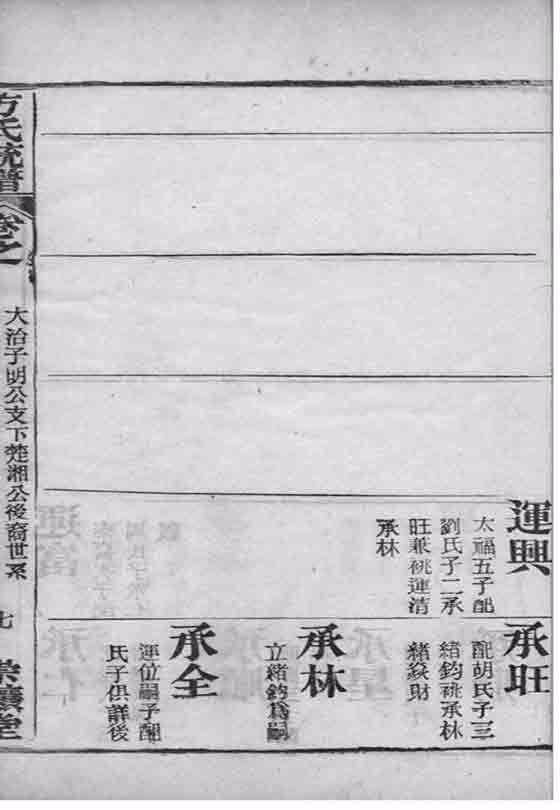 運興
太福五子配
劉氏子二承
旺兼祧運清
承林
承旺
配胡氏子三
緒鈞祧承林
緒焱財
承林
立緒鈞爲嗣
承全
運位嗣子配
氏子俱詳後
方氏統譜
卷之
大治子明公支下楚湘公後裔世系
七
堂